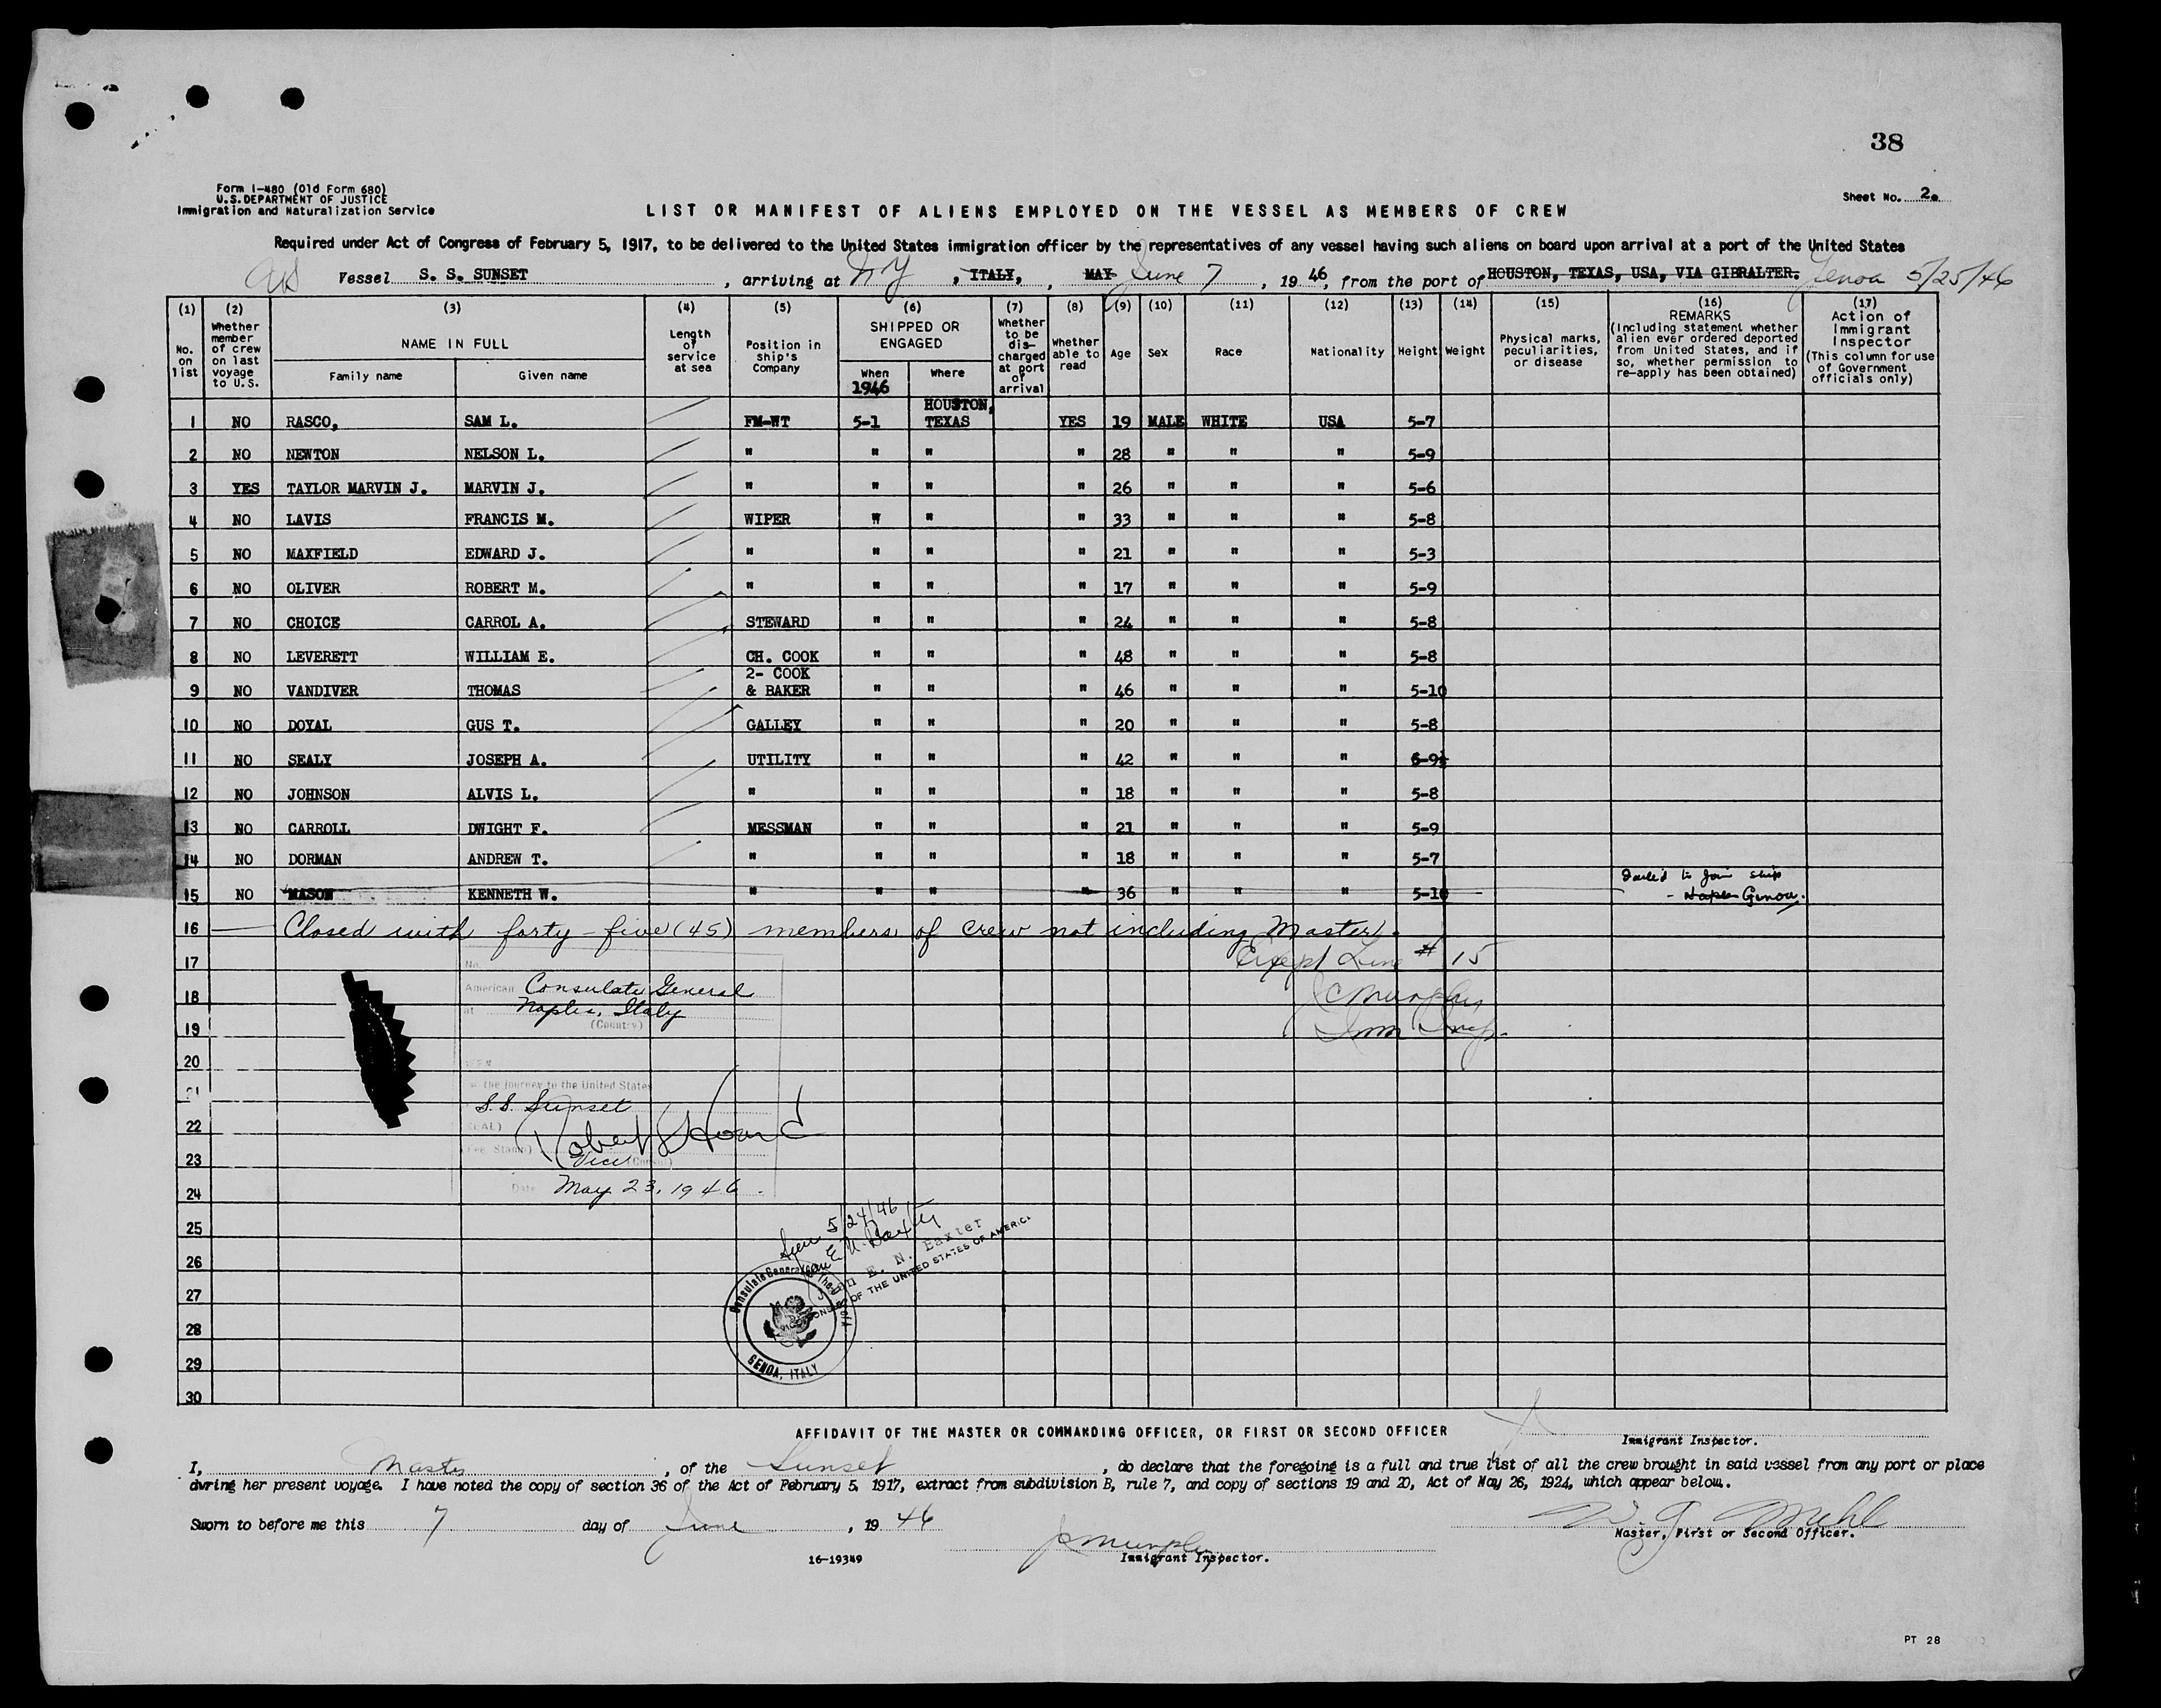 38
Form I-480 (Old Form 680)
U.S. DEPARTMENT OF JUSTICE
Immigration and Naturalization Service
Sheet No. 2.
LIST OR MANIFEST OF ALIENS EMPLOYED ON THE VESSEL AS MEMBERS OF CREW
Required under Act of Congress of February 5, 1917, to be delivered to the United States immigration officer by the representatives of any vessel having such aliens on board upon arrival at a port of the United States
Vessel S. S. SUNSET, arriving at NY, ITALY, MAY June 7, 19 46, from the port of HOUSTON, TEXAS, USA, VIA GIBRALTER. Genoa 5/25/46
(1) No. on list
(2) Whether member of crew on last voyage to U.S.
(3) NAME IN FULL
Family name
Given name
(4) Length of service at sea
(5) Position in ship's Company
(6) SHIPPED OR ENGAGED
When 1946
Where
(7) Whether to be discharged at port of arrival
(8) Whether able to read
(9) Age
(10) Sex
(11) Race
(12) Nationality
(13) Height
(14) Weight
(15) Physical marks, peculiarities, or disease
(16) REMARKS (Including statement whether alien ever ordered deported from United States, and if so, whether permission to re-apply has been obtained)
(17) Action of Immigrant Inspector (This column for use of Government officials only)
1 NO RASCO, SAM L. FM-WT 5-1 HOUSTON, TEXAS YES 19 MALE WHITE USA 5-7
2 NO NEWTON NELSON L. " " " " 28 " " " 5-9
3 YES TAYLOR MARVIN J. MARVIN J. " " " " 26 " " " 5-6
4 NO LAVIS FRANCIS M. WIPER " " " 33 " " " 5-8
5 NO MAXFIELD EDWARD J. " " " " 21 " " " 5-3
6 NO OLIVER ROBERT M. " " " " 17 " " " 5-9
7 NO CHOICE CARROL A. STEWARD " " " 24 " " " 5-8
8 NO LEVERETT WILLIAM E. CH. COOK " " " 48 " " " 5-8
9 NO VANDIVER THOMAS 2- COOK & BAKER " " " 46 " " " 5-10
10 NO DOYAL GUS T. GALLEY " " " 20 " " " 5-8
11 NO SEALY JOSEPH A. UTILITY " " " 42 " " "
12 NO JOHNSON ALVIS L. " " " " 18 " " " 5-8
13 NO CARROLL DWIGHT F. MESSMAN " " " 21 " " " 5-9
14 NO DORMAN ANDREW T. " " " " 18 " " " 5-7
15 NO MASON KENNETH W. " " " " 36 " " " 5-10 Failed to join ship - Naples Genoa.
16 Closed with forty-five (45) members of crew not including Master.
17 Except Line # 15
18 JC Murphy
19 Imm Insp.
20
21
22
23
24
25
26
27
28
29
30
No.
American Consulate General
at Naples, Italy
(Country)
SEEN
the journey to the United States
S.S. Sunset
(SEAL)
(Fee Stamp)
Vice (Consul)
Date May 23, 1946.
Seen 5/24/46
E. N. Baxter
E. N. Baxter
CONSUL OF THE UNITED STATES OF AMERICA
Consulate General
GENOA, ITALY
AFFIDAVIT OF THE MASTER OR COMMANDING OFFICER, OR FIRST OR SECOND OFFICER
Immigrant Inspector.
I, Master, of the Sunset, do declare that the foregoing is a full and true list of all the crew brought in said vessel from any port or place
during her present voyage. I have noted the copy of section 36 of the Act of February 5, 1917, extract from subdivision B, rule 7, and copy of sections 19 and 20, Act of May 26, 1924, which appear below.
Sworn to before me this 7 day of June, 19 46
JC Murphy
Immigrant Inspector.
Master, First or Second Officer.
16-19349
PT 28